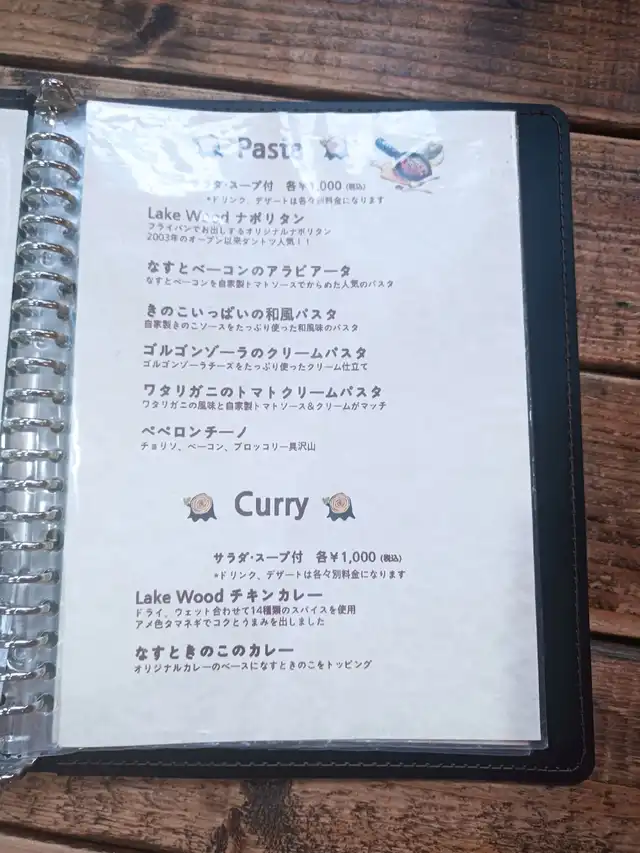 Pasta
サラダ・スープ付 各¥1,000 (税込)
*ドリンク、デザートは各々別料金になります
Lake Wood ナポリタン
フライパンでお出しするオリジナルナポリタン
2003年のオープン以来ダントツ人気！！
なすとベーコンのアラビアータ
なすとベーコンを自家製トマトソースでからめた人気のパスタ
きのこいっぱいの和風パスタ
自家製きのこソースをたっぷり使った和風味のパスタ
ゴルゴンゾーラのクリームパスタ
ゴルゴンゾーラチーズをたっぷり使ったクリーム仕立て
ワタリガニのトマトクリームパスタ
ワタリガニの風味と自家製トマトソース&クリームがマッチ
ペペロンチーノ
チョリソ、ベーコン、ブロッコリー具沢山
Curry
サラダ・スープ付 各¥1,000 (税込)
*ドリンク、デザートは各々別料金になります
Lake Wood チキンカレー
ドライ、ウェット合わせて14種類のスパイスを使用
アメ色タマネギでコクとうまみを出しました
なすときのこのカレー
オリジナルカレーのベースになすときのこをトッピング